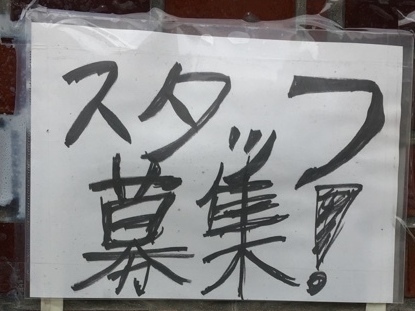 スタッフ
募集!